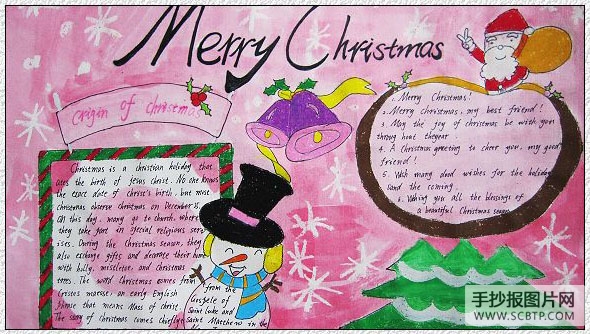 Merry Christmas
origin of christmas
Christmas is a christian holiday that
the birth of jesus christ. No one knows
the exact date of christ's birth, but most
christmas observe christmas on December 25.
On this day, many go to church, where
they take part in special religious serv
ises. During the Christmas season, they
also exchange gifts and decorate their home
with holly, mistletoe, and Christmas
trees. The word Christmas comes from
Cristes maesse, an early English
phrase that means Mass of christ.
The story of Christmas comes chiefly
from the
Gospels of
Saint Luke and
Saint Matthew in the
1. Merry Christmas!
2. Merry christmas, my best friend!
3. May the joy of christmas be with you
through hout the year.
4. A Christmas greeting to cheer you, my good
friend!
5. With many good wishes for the holiday
and the coming.
6. Wishing you all the blessings of
a beautiful Christmas season
手抄报图片网
WWW.SCBTP.COM